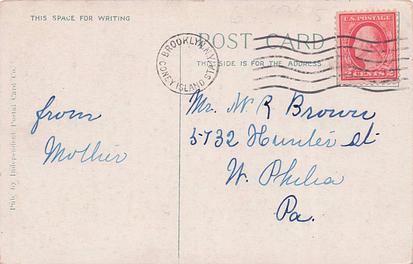 THIS SPACE FOR WRITING
POST CARD
THIS SIDE IS FOR THE ADDRESS
BROOKLYN, N.Y.
CONEY ISLAND STA.
U.S. POSTAGE
2 CENTS 2
Pub. by Independent Postal Card Co.
from
Mother
Mr. W R Brown
5732 Hunter st
W. Phila
Pa.